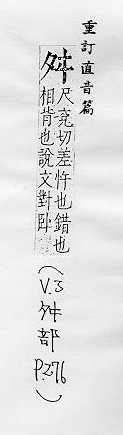 重訂直音篇
舛尺兗切差忤也錯也
相背也說文對臥
(V.3 舛部 P.276)